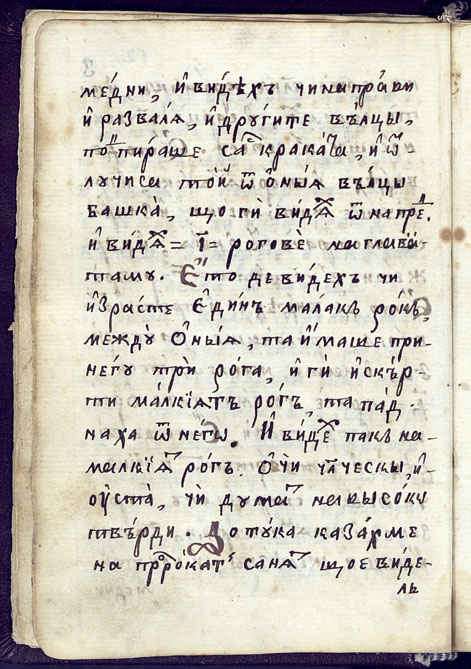 ме́дни, и҆ ви́дѣхъ чи направи
и҆ разваля, и҆ дрꙋ́гите вълцы,
по пира́ше са́ крака́та, и҆ ѿ-
лꙋчиса то́й ѿ о҆ныѧ вълцы
башка̀, що ги ви́дѧ ѿ напре́д.
и҆ ви́дѧ = і҃ = роговѐ на глава-
тамꙋ. Е҆то де ви́дехъ чи
и҆зрасте е҆ди́нъ малакъ рокъ,
междꙋ̀ о҆ныѧ, та и҆маше при
него трѝ рога, и҆ гѝ и҆скър
ти малкїѧтъ рогъ, та пад-
наха ѿ него. И҆ виде пакъ на
малкїѧ рогъ. О҆чи чл҃ческы, и҆
оуста̀, чѝ дꙋмат на високꙋ
твърди. Дотꙋка каза́хме
на пррока́т санѧт щое виде-
ль